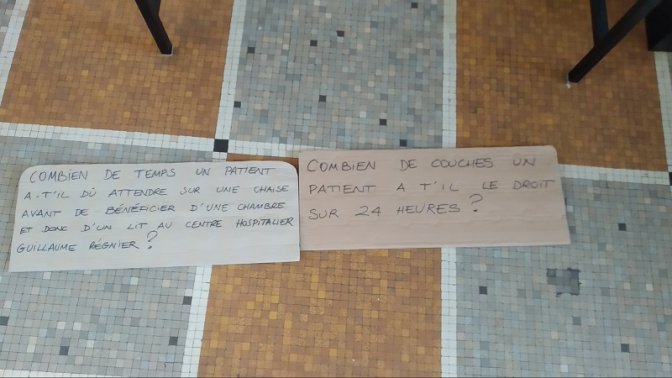 COMBIEN DE TEMPS UN PATIENT
A-T'IL DÛ ATTENDRE SUR UNE CHAISE
AVANT DE BÉNÉFICIER D'UNE CHAMBRE
ET DONC D'UN LIT AU CENTRE HOSPITALIER
GUILLAUME RÉGNIER ?
COMBIEN DE COUCHES UN
PATIENT A T'IL LE DROIT
SUR 24 HEURES ?